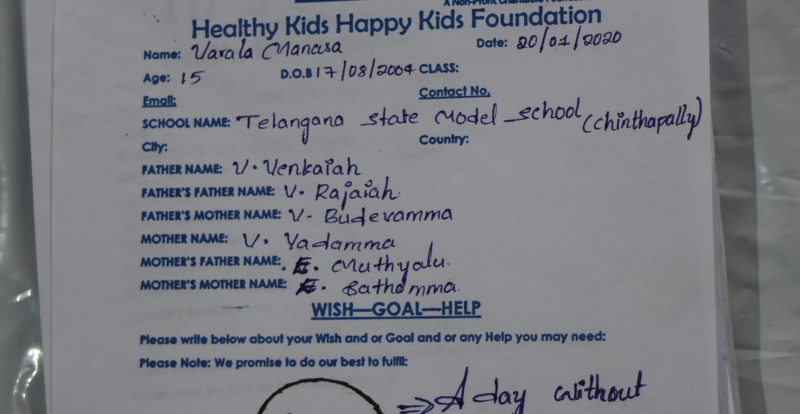 A Non-Profit Charitable Foundation
Healthy Kids Happy Kids Foundation
Name: Varala Manasa Date: 20/01/2020
Age: 15 D.O.B 17/08/2004 CLASS:
Email: Contact No.
SCHOOL NAME: Telangana state Model school (chinthapally)
City: Country:
FATHER NAME: V. Venkaiah
FATHER'S FATHER NAME: V. Rajaiah
FATHER'S MOTHER NAME: V- Budevamma
MOTHER NAME: V. Yadamma
MOTHER'S FATHER NAME: E. Muthyalu.
MOTHER'S MOTHER NAME: E. Bathamma
WISH—GOAL—HELP
Please write below about your Wish and or Goal and or any Help you may need:
Please Note: We promise to do our best to fulfil:
⇒ A day without